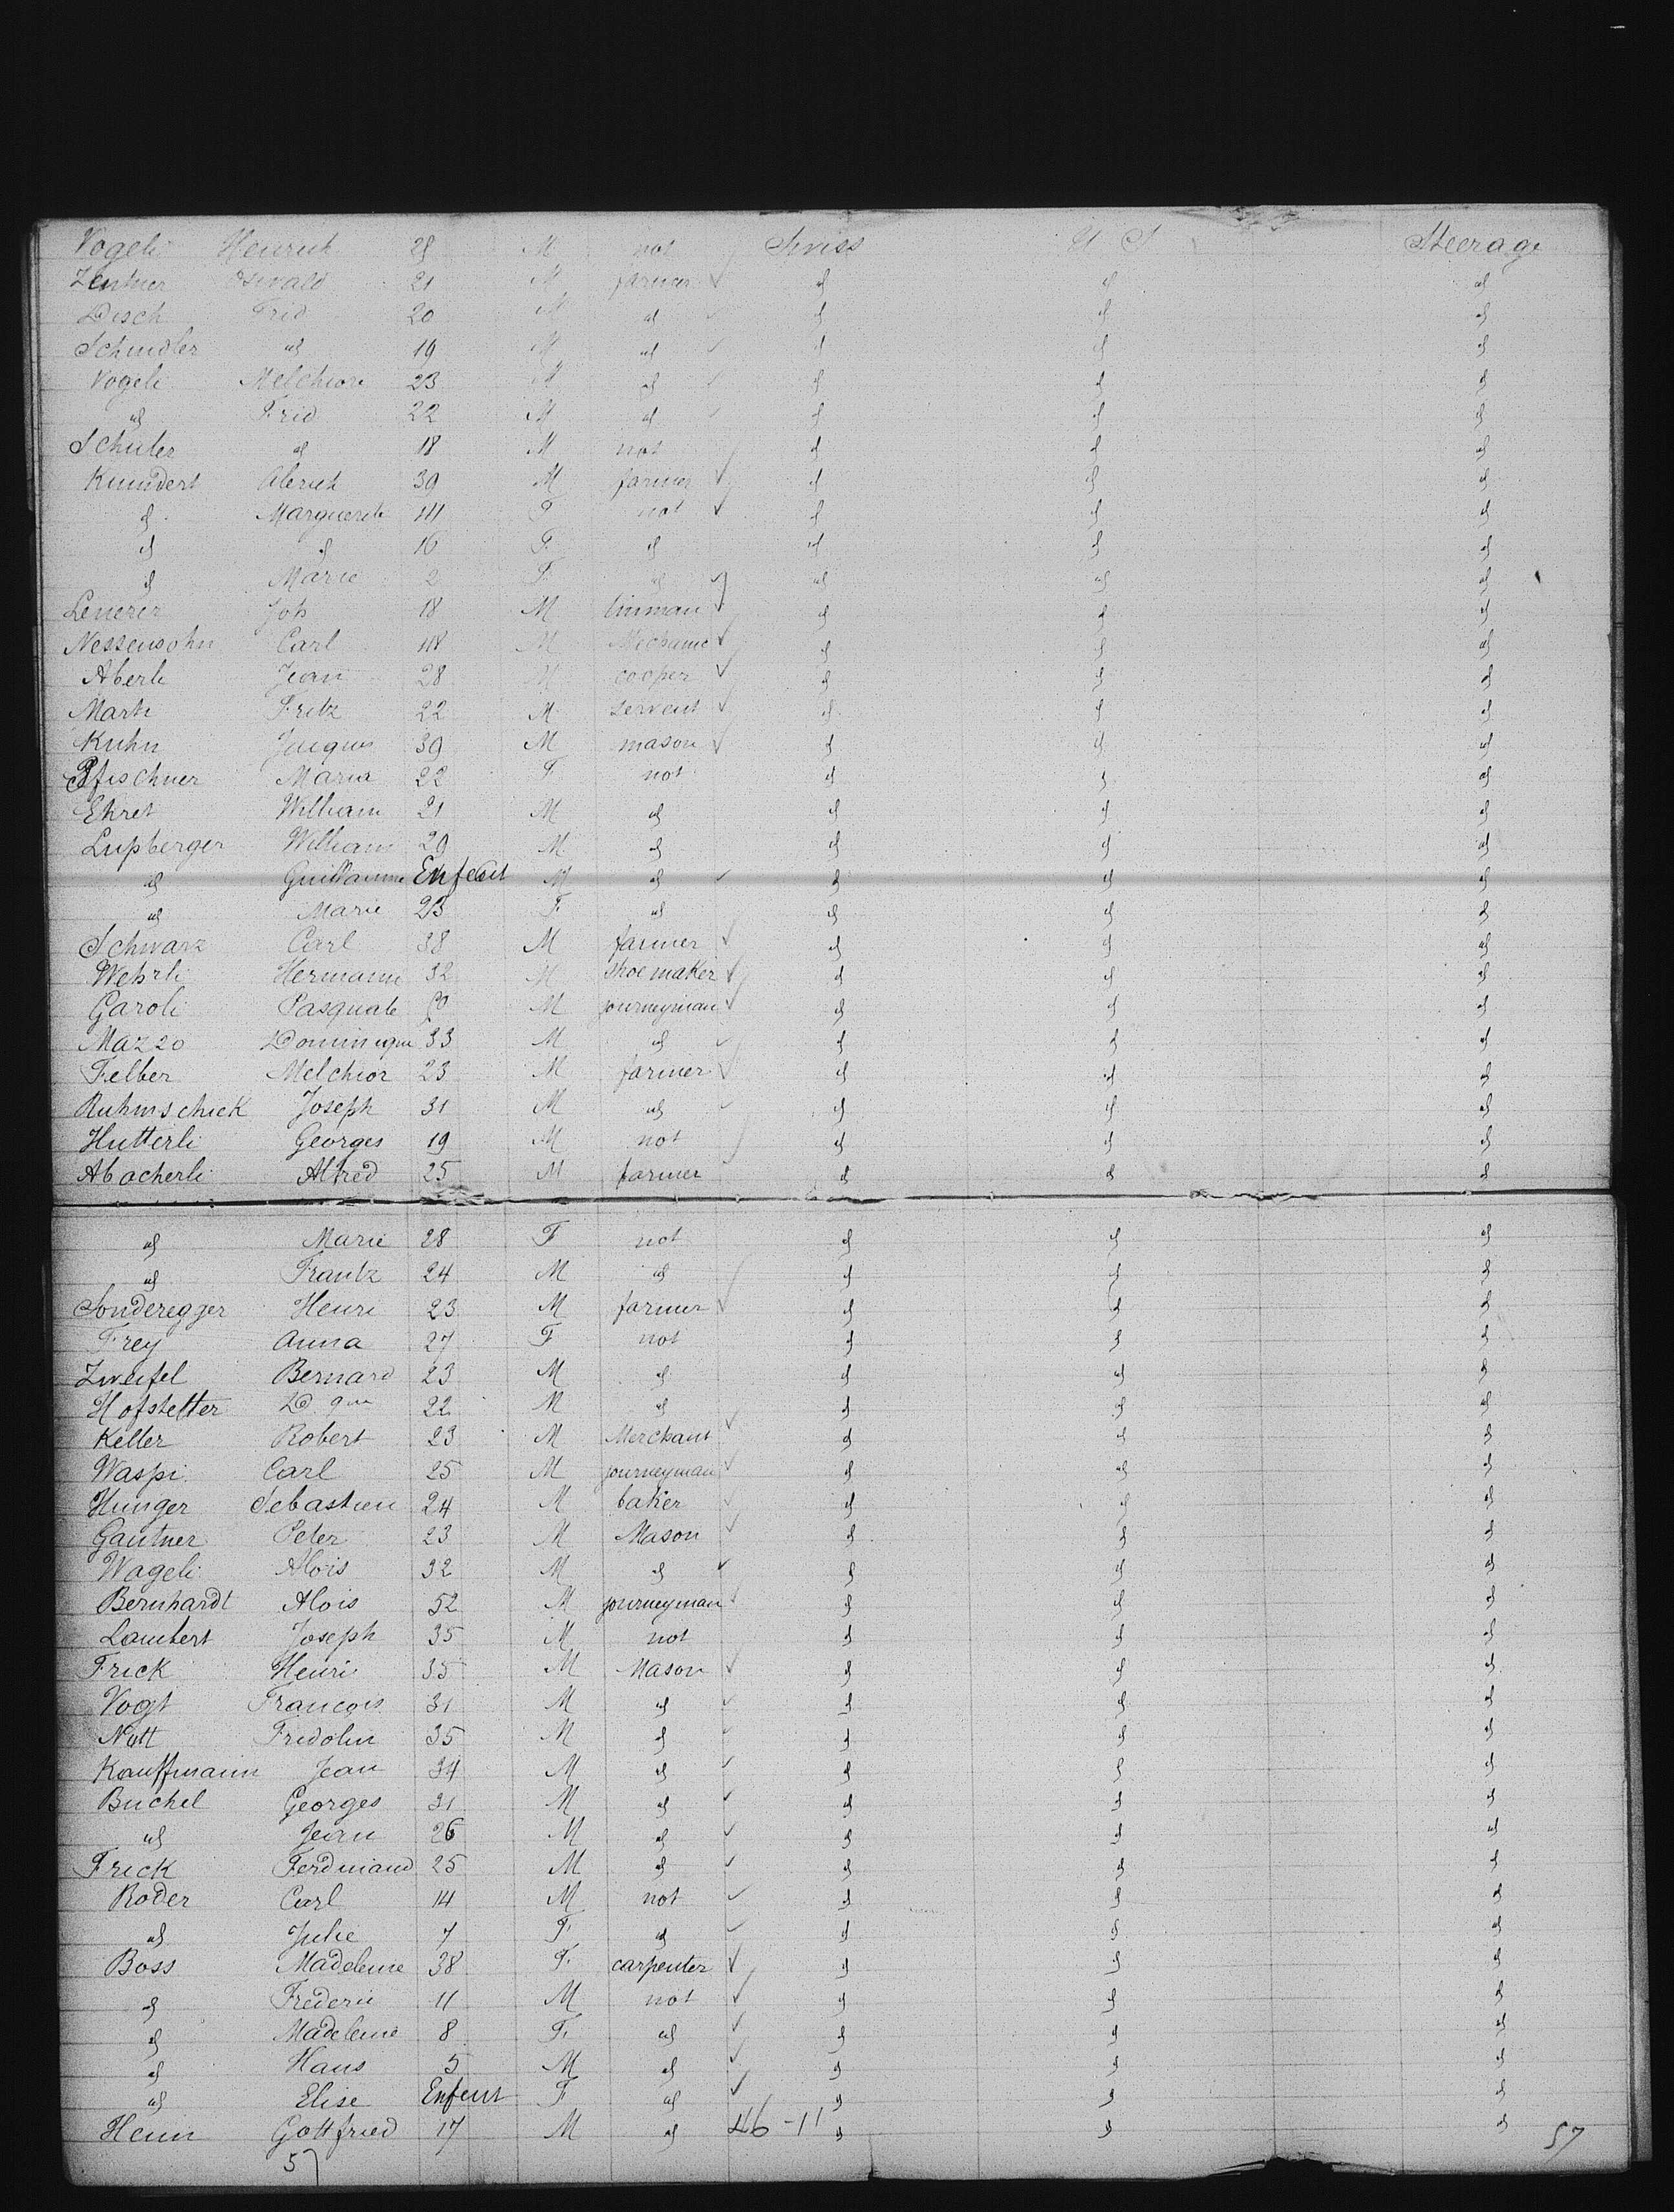 Vogeli Henrich 28 M not Swiss U S Steerage
Zentner Oswald 21 M farmer " " "
Disch Frid 20 M " " " "
Schindler " 19 M " " " "
Vogeli Melchior 23 M " " " "
" Frid 22 M " " " "
Schuler " 18 M not " " "
Kundert Alerich 39 M farmer " " "
" Marguerite 44 F not " " "
" " 16 F " " " "
" Marie 2 F " " " "
Lenerer Joh 18 M tinman " " "
Nessensohn Carl 48 M Mechanic " " "
Aberli Jean 28 M cooper " " "
Marti Fritz 22 M servent " " "
Kuhn Jacques 39 M mason " " "
Pfischner Maria 22 F not " " "
Ehret William 21 M " " " "
Lupberger William 29 M " " " "
" Guillaume Enfant M " " " "
" Marie 23 F " " " "
Schwarz Carl 38 M farmer " " "
Wehrli Hermann 32 M shoemaker " " "
Garoli Pasquale M journeyman " " "
Mazzo Dominique 33 M " " " "
Felber Melchior 23 M farmer " " "
Ruhmschick Joseph 31 M " " " "
Hutterli Georges 19 M not " " "
Abacherli Alfred 25 M farmer " " "
" Marie 28 F not " " "
" Frantz 24 M " " " "
Sonderegger Henri 23 M farmer " " "
Frey Anna 27 F not " " "
Zweifel Bernard 23 M " " " "
Hofstetter 22 M " " " "
Keller Robert 23 M Merchant " " "
Waspi Carl 25 M journeyman " " "
Hunger Sebastien 24 M baker " " "
Gantner Peter 23 M Mason " " "
Wageli Alois 32 M " " " "
Bernhardt Alois 52 M journeyman " " "
Lambert Joseph 35 M not " " "
Frick Henri 35 M Mason " " "
Vogt Francois 31 M " " " "
Nutt Fridolin 35 M " " " "
Kauffmann Jean 34 M " " " "
Buchel Georges 31 M " " " "
" Jean 26 M " " " "
Frick Ferdinand 25 M " " " "
Roder Carl 14 M not " " "
" Julie 7 F " " " "
Boss Madeleine 38 F carpenter " " "
" Frederic 11 M not " " "
" Madeleine 8 F " " " "
" Hans 5 M " " " "
" Elise Enfant F " " " "
Henn Gottfried 17 M " 46-11 " " "
57 57